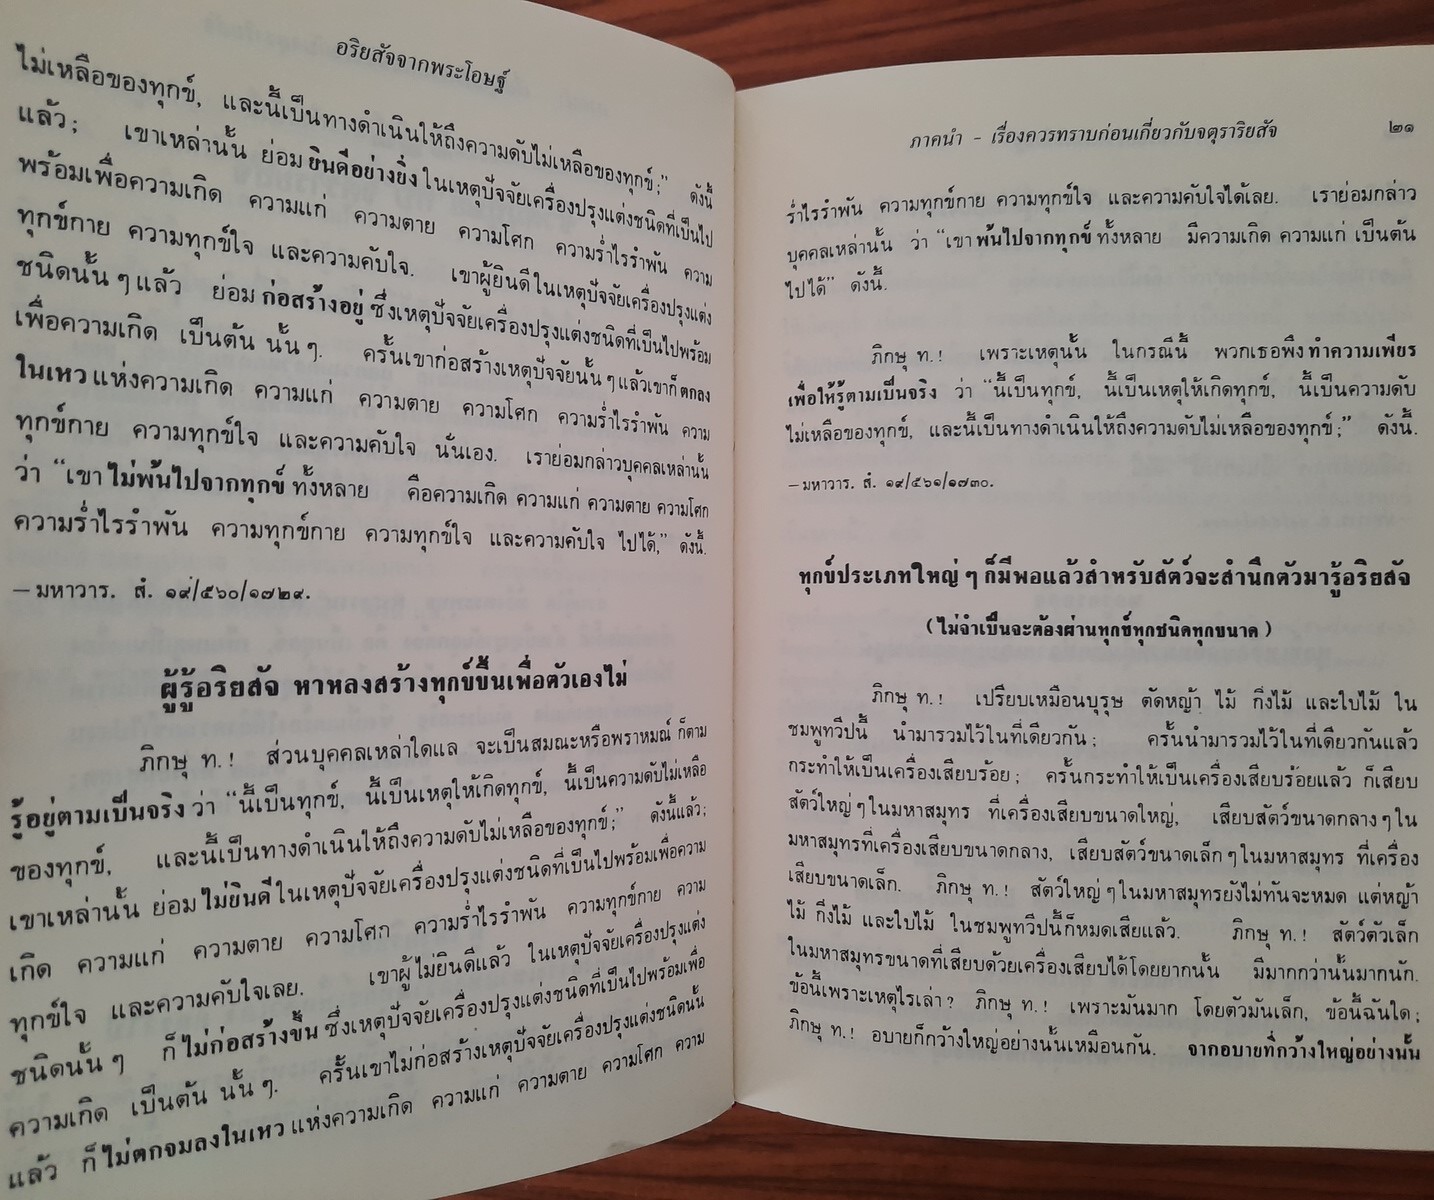 อริยสัจจากพระโอษฐ์
ไม่เหลือของทุกข์, และนี้เป็นทางดำเนินให้ถึงความดับไม่เหลือของทุกข์;” ดังนี้
แล้ว; เขาเหล่านั้น ย่อมยินดีอย่างยิ่งในเหตุปัจจัยเครื่องปรุงแต่งชนิดที่เป็นไป
พร้อมเพื่อความเกิด ความแก่ ความตาย ความโศก ความร่ำไรรำพัน ความ
ทุกข์กาย ความทุกข์ใจ และความคับใจ. เขาผู้ยินดีในเหตุปัจจัยเครื่องปรุงแต่ง
ชนิดนั้น ๆ แล้ว ย่อมก่อสร้างอยู่ ซึ่งเหตุปัจจัยเครื่องปรุงแต่งชนิดที่เป็นไปพร้อม
เพื่อความเกิด เป็นต้น นั้น ๆ. ครั้นเขาก่อสร้างเหตุปัจจัยนั้น ๆ แล้วเขาก็ ตกลง
ในเหว แห่งความเกิด ความแก่ ความตาย ความโศก ความร่ำไรรำพัน ความ
ทุกข์กาย ความทุกข์ใจ และความคับใจ นั่นเอง. เราย่อมกล่าวบุคคลเหล่านั้น
ว่า “เขา ไม่พ้นไปจากทุกข์ ทั้งหลาย คือความเกิด ความแก่ ความตาย ความโศก
ความร่ำไรรำพัน ความทุกข์กาย ความทุกข์ใจ และความคับใจ ไปได้,” ดังนี้.
– มหาวาร. สํ. ๑๙/๕๖๐/๑๗๒๙.
ผู้รู้อริยสัจ หาหลงสร้างทุกข์ขึ้นเพื่อตัวเองไม่
ภิกษุ ท.! ส่วนบุคคลเหล่าใดแล จะเป็นสมณะหรือพราหมณ์ ก็ตาม
รู้อยู่ตามเป็นจริง ว่า “นี้เป็นทุกข์, นี้เป็นเหตุให้เกิดทุกข์, นี้เป็นความดับไม่เหลือ
ของทุกข์, และนี้เป็นทางดำเนินให้ถึงความดับไม่เหลือของทุกข์;” ดังนี้แล้ว;
เขาเหล่านั้น ย่อม ไม่ยินดี ในเหตุปัจจัยเครื่องปรุงแต่งชนิดที่เป็นไปพร้อมเพื่อความ
เกิด ความแก่ ความตาย ความโศก ความร่ำไรรำพัน ความทุกข์กาย ความ
ทุกข์ใจ และความคับใจเลย. เขาผู้ไม่ยินดีแล้ว ในเหตุปัจจัยเครื่องปรุงแต่ง
ชนิดนั้น ๆ ก็ ไม่ก่อสร้างขึ้น ซึ่งเหตุปัจจัยเครื่องปรุงแต่งชนิดที่เป็นไปพร้อมเพื่อ
ความเกิด เป็นต้น นั้น ๆ. ครั้นเขาไม่ก่อสร้างเหตุปัจจัยเครื่องปรุงแต่งชนิดนั้น
แล้ว ก็ ไม่ตกจมลงในเหว แห่งความเกิด ความแก่ ความตาย ความโศก ความ
ภาคนำ - เรื่องควรทราบก่อนเกี่ยวกับจตุราริยสัจ ๒๑
ร่ำไรรำพัน ความทุกข์กาย ความทุกข์ใจ และความคับใจได้เลย. เราย่อมกล่าว
บุคคลเหล่านั้น ว่า “เขา พ้นไปจากทุกข์ ทั้งหลาย มีความเกิด ความแก่ เป็นต้น
ไปได้” ดังนี้.
ภิกษุ ท.! เพราะเหตุนั้น ในกรณีนี้ พวกเธอพึง ทำความเพียร
เพื่อให้รู้ตามเป็นจริง ว่า “นี้เป็นทุกข์, นี้เป็นเหตุให้เกิดทุกข์, นี้เป็นความดับ
ไม่เหลือของทุกข์, และนี้เป็นทางดำเนินให้ถึงความดับไม่เหลือของทุกข์;” ดังนี้.
– มหาวาร. สํ. ๑๙/๕๖๑/๑๗๓๐.
ทุกข์ประเภทใหญ่ ๆ ก็มีพอแล้วสำหรับสัตว์จะสำนึกตัวมารู้อริยสัจ
(ไม่จำเป็นจะต้องผ่านทุกข์ทุกชนิดทุกขนาด)
ภิกษุ ท.! เปรียบเหมือนบุรุษ ตัดหญ้า ไม้ กิ่งไม้ และใบไม้ ใน
ชมพูทวีปนี้ นำมารวมไว้ในที่เดียวกัน; ครั้นนำมารวมไว้ในที่เดียวกันแล้ว
กระทำให้เป็นเครื่องเสียบร้อย; ครั้นกระทำให้เป็นเครื่องเสียบร้อยแล้ว ก็เสียบ
สัตว์ใหญ่ ๆ ในมหาสมุทร ที่เครื่องเสียบขนาดใหญ่, เสียบสัตว์ขนาดกลาง ๆ ใน
มหาสมุทรที่เครื่องเสียบขนาดกลาง, เสียบสัตว์ขนาดเล็ก ๆ ในมหาสมุทร ที่เครื่อง
เสียบขนาดเล็ก. ภิกษุ ท.! สัตว์ใหญ่ ๆ ในมหาสมุทรยังไม่ทันจะหมด แต่หญ้า
ไม้ กิ่งไม้ และใบไม้ ในชมพูทวีปนี้ก็หมดเสียแล้ว. ภิกษุ ท.! สัตว์ตัวเล็ก
ในมหาสมุทรขนาดที่เสียบด้วยเครื่องเสียบได้โดยยากนั้น มีมากกว่านั้นมากนัก.
ข้อนี้เพราะเหตุไรเล่า? ภิกษุ ท.! เพราะมันมาก โดยตัวมันเล็ก, ข้อนี้ฉันใด;
ภิกษุ ท.! อบายก็กว้างใหญ่อย่างนั้นเหมือนกัน. จากอบายที่กว้างใหญ่อย่างนั้น